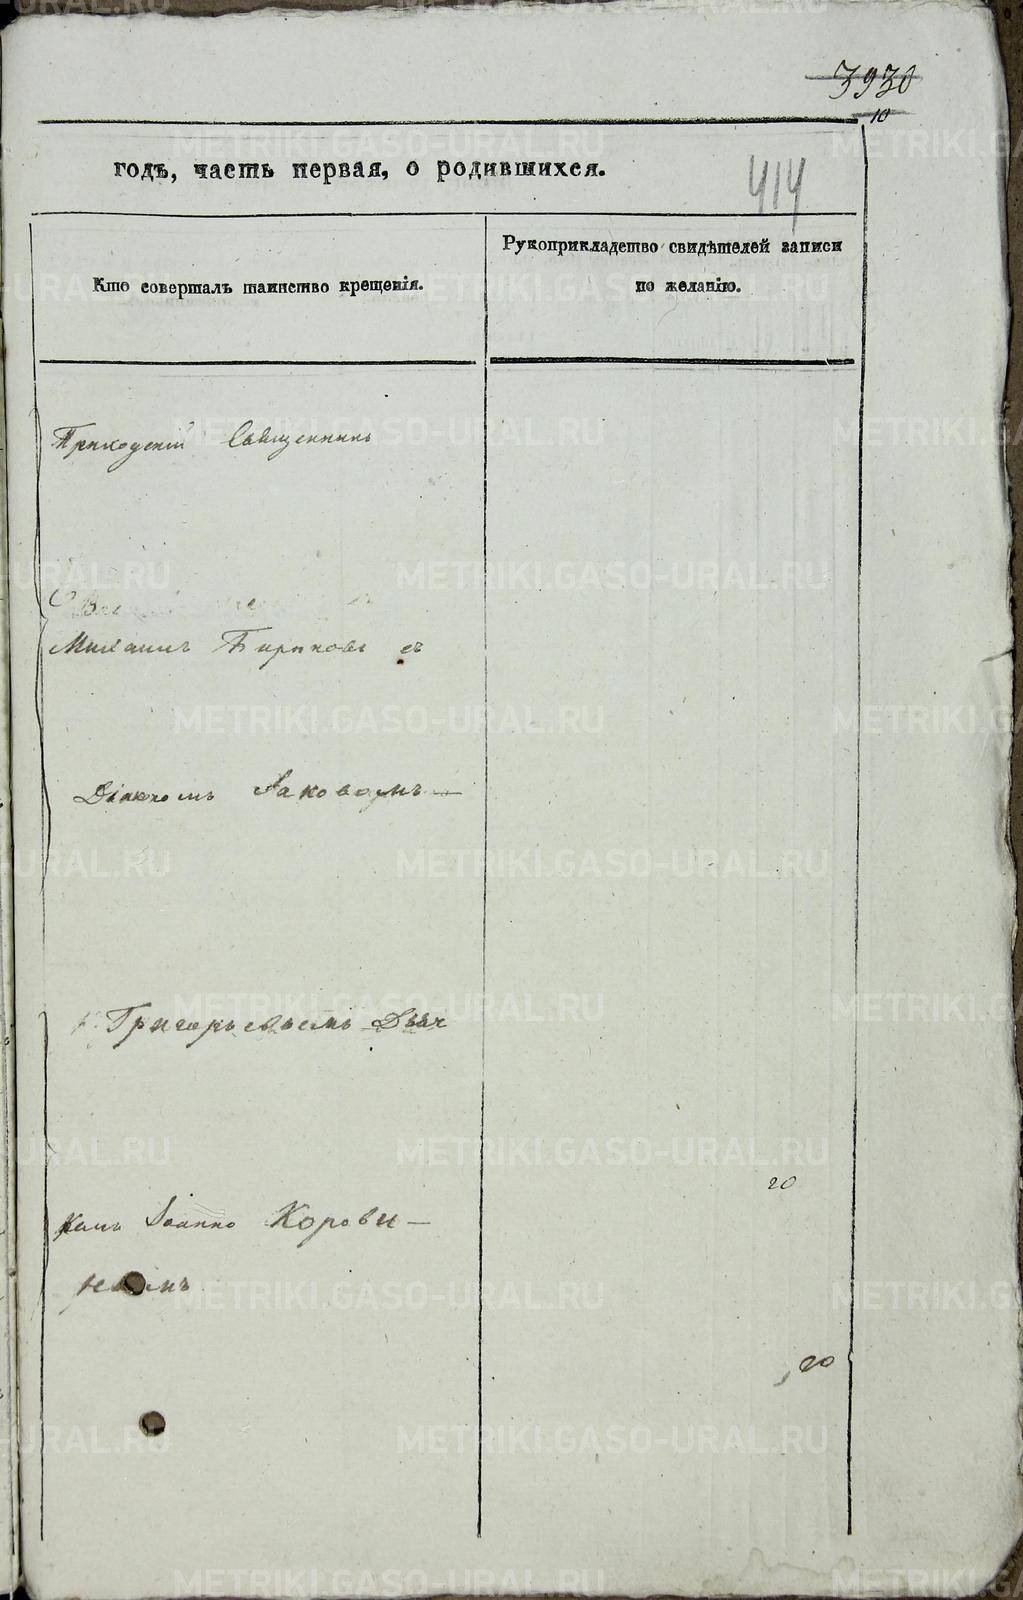 3930
10
414
годъ, часть первая, о родившихся.
Кто совершалъ таинство крещенія.
Рукоприкладство свидѣтелей записи
по желанію.
Приходскій Священникъ
Михаилъ Бирюковъ съ
Діакономъ Іаковомъ
Григорьевымъ Дьяч
комъ Іоанно Корови-
20
нымъ
20
METRIKI.GASO-URAL.RU